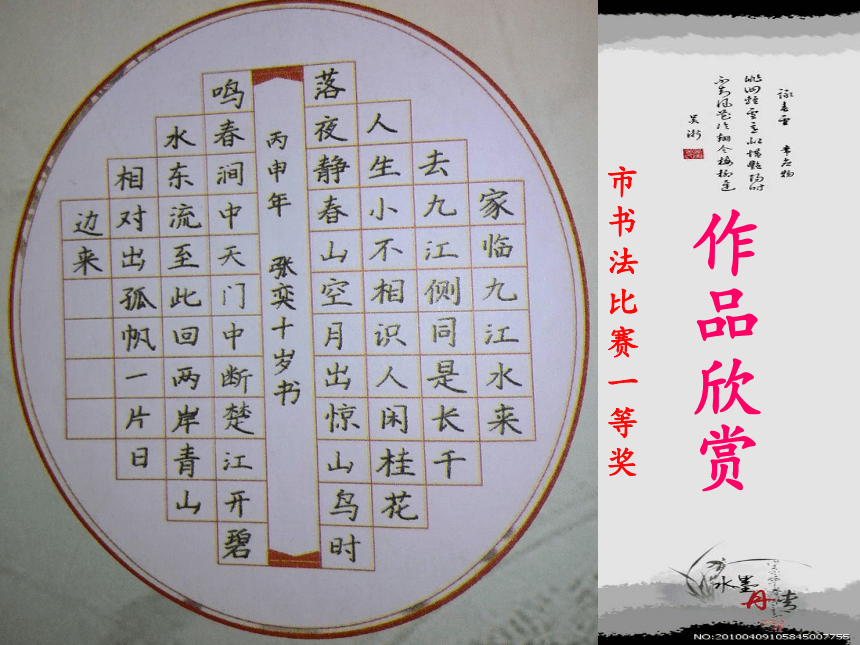 家临九江水来
去九江侧同是长千
人生小不相识人闲桂花
落夜静春山空月出惊山鸟时
丙申年 张奕十岁书
鸣春涧中天门中断楚江开碧
水东流至此回两岸青山
相对出孤帆一片日
边来
作品欣赏
市书法比赛一等奖
水墨丹青
NO:20100409105845007755